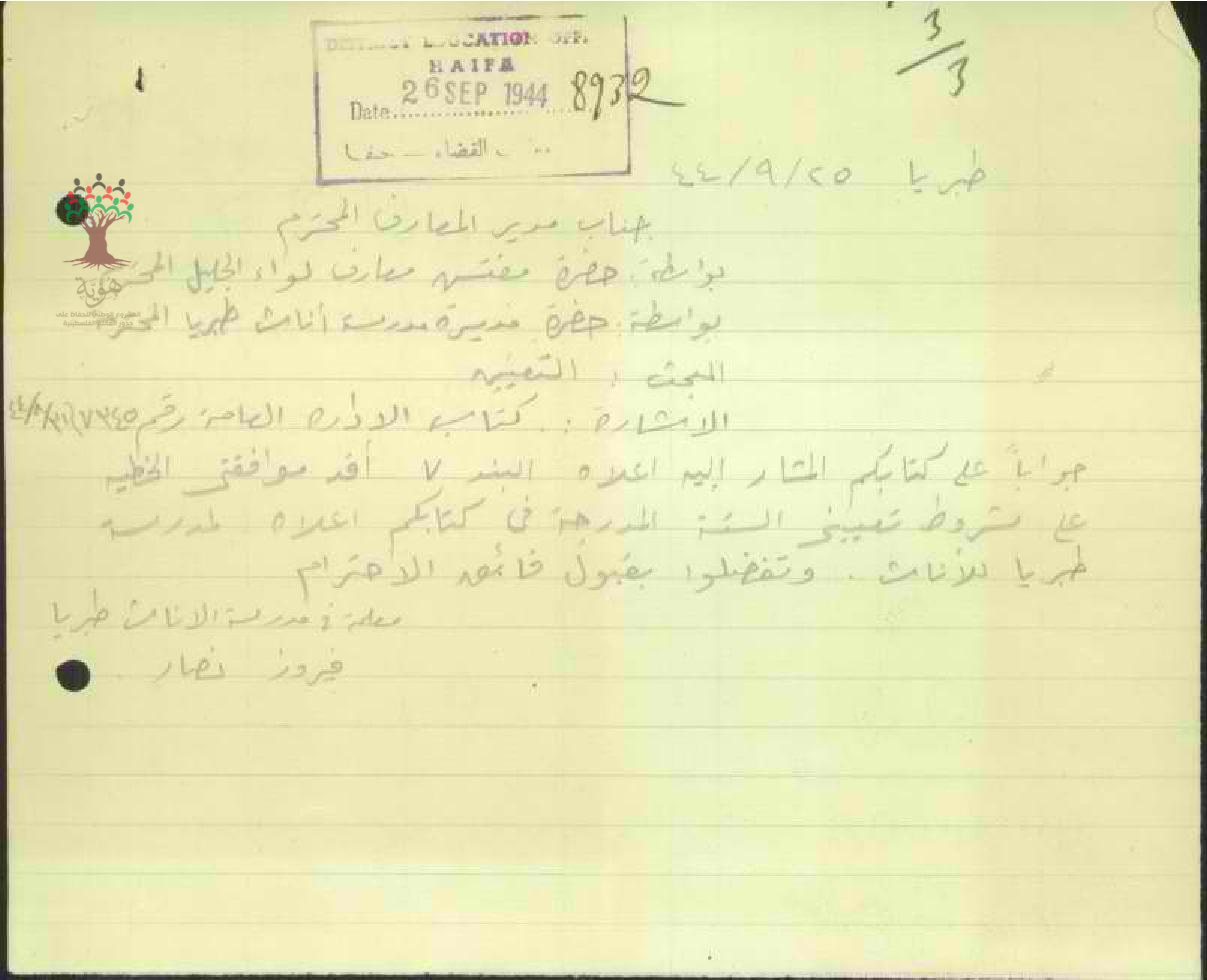 3/3
DISTRICT EDUCATION OFF.
HAIFA
Date 26 SEP 1944 8932
القضاء - حيفا
طبريا ٢٥/٩/٤٤
جناب مدير المعارف المحترم
بواسطة: حضرة مفتش معارف لواء الجليل المحترم
بواسطة: حضرة مديرة مدرسة أناث طبريا المحترمة
المبحث: التعيين
الاشارة: كتاب الادارة العامة رقم
جواباً على كتابكم المشار إليه اعلاه البند ٧ أقد موافقتي الخطيه
على شروط تعييني الستة المدرجة في كتابكم اعلاه لمدرسة
طبريا للأناث. وتفضلوا بقبول فائق الاحترام
معلمة في مدرسة الاناث طبريا
فيروز نصار
هوية